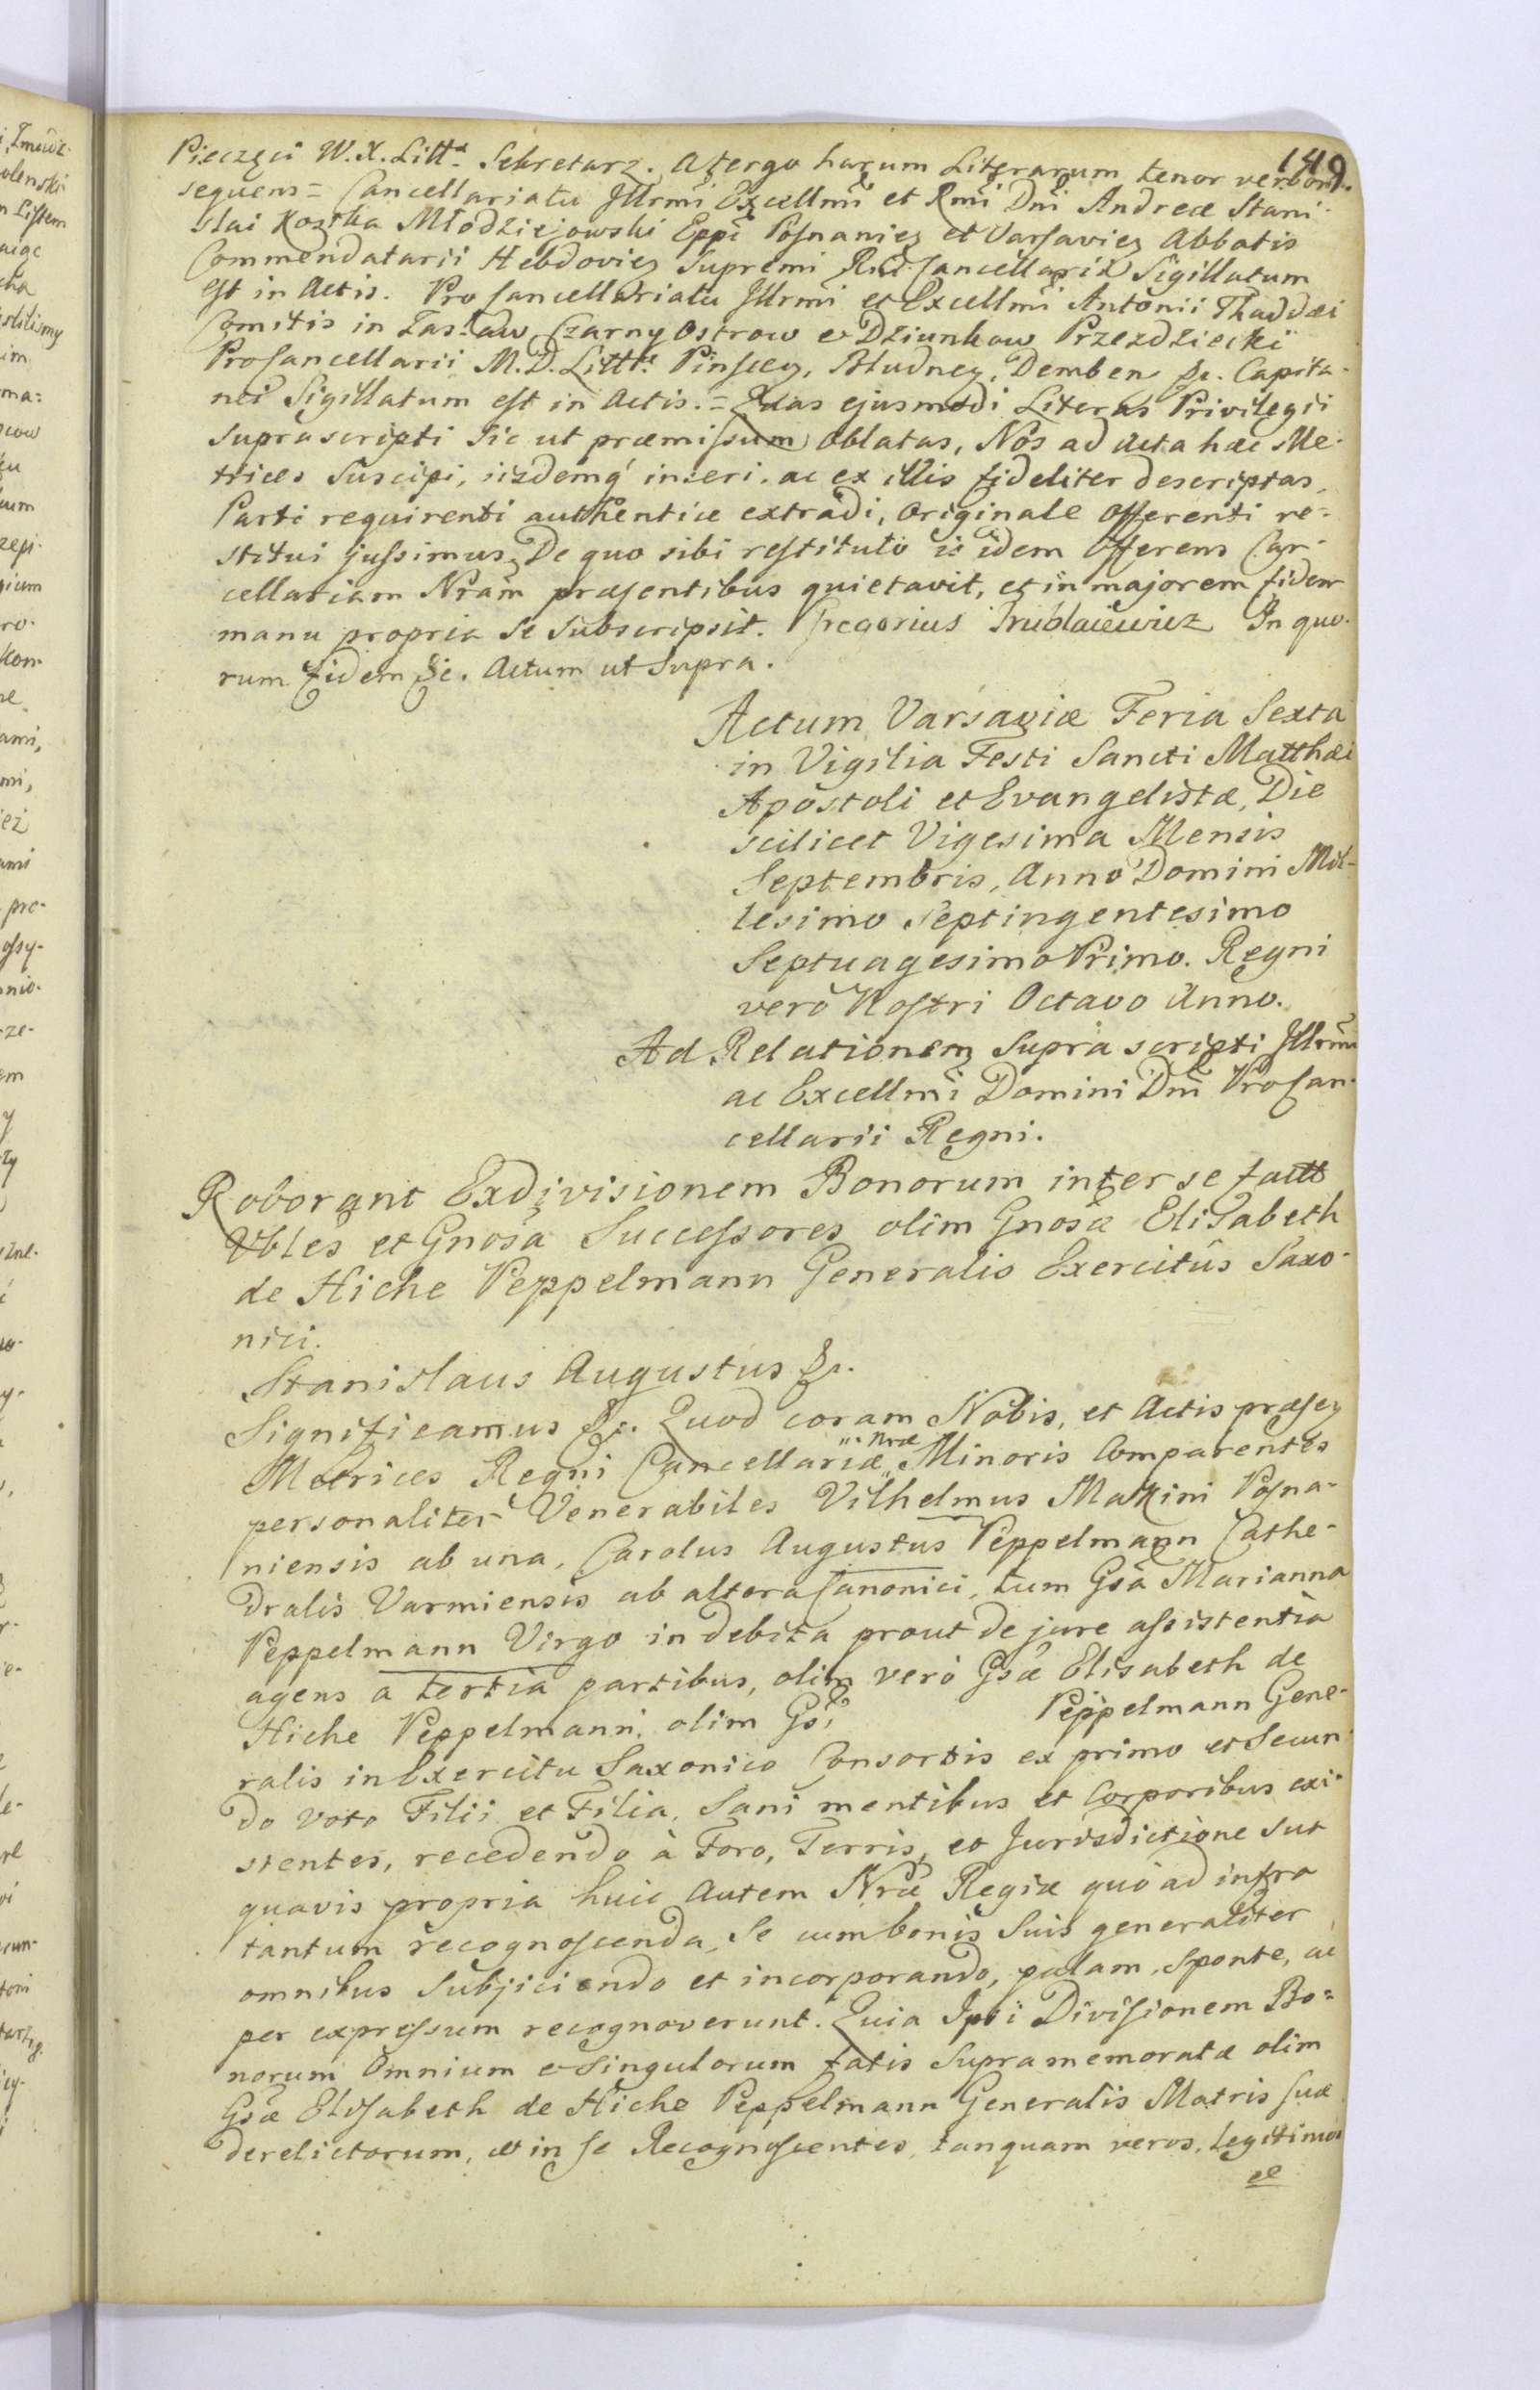 149.
Pieczęci W. X. Litt: Sekretarz. A tergo harum Literarum tenor verborum
sequens = Cancellariatu Jllrmi Excellmi et Rmi Dni Andreæ Stani-
slai Kostka Młodziejowski Eppi Posnaniej et Varsaviej Abbatis
Commendatarii Hebdoviej Supremi Regni Cancellarii Sigillatum
est in Actis. Procancellariatu Jllrmi et Excellmi Antonii Thaddæi
Comitis in Zasław Czarny Ostrow et Dziunkow Przezdziecki
Procancellarii M. D. Litt: Pinscej, Błudnej, Demben &c. Capita-
nei Sigillatum est in Actis. = Quas ejusmodi Literas Privilegii
suprascripti sic ut præmissum oblatas, Nos ad Acta hæc Me-
trices suscipi, iisdemq' inseri, ac ex illis fideliter descriptas,
Parti requirenti authentice extradi, Originale Offerenti re-
stitui jussimus, De quo sibi restituto is idem Offerens Can-
cellariam Nram præsentibus quietavit, et in majorem fidem
manu propria se subscripsit. Gregorius In quo-
rum fidem &c. Actum ut Supra.
Actum Varsaviæ Feria Sexta
in Vigilia Festi Sancti Matthæi
Apostoli et Evangelistæ, Die
scilicet Vigesima Mensis
Septembris, Anno Domini Mil-
lesimo Septingentesimo
Septuagesimo Primo. Regni
verò Nostri Octavo Anno.
Ad Relationem Supra scripti Jllrmi
ac Excellmi Domini Dni Procan-
cellarii Regni.
Roborant Exdivisionem Bonorum inter se
Vbles et Gnosa Successores olim Gnosæ Elisabeth
de Hiche Peppelmann Generalis Exercitûs Saxo-
nici.
Stanislaus Augustus &c.
Significamus &c. Quod coram Nobis, et Actis præsej
Metrices Regni Cancellariæ „ Nræ „ Minoris Comparentes
personaliter Venerabiles Vilhelmus Makini Posna-
niensis ab una, Carolus Augustus Peppelmann Cathe-
dralis Varmiensis ab altera Canonici, tum Gsa Marianna
Peppelmann Virgo in debita prout de jure assistentia
agens a tertia partibus, olim verò Gsæ Elisabeth de
Hiche Peppelmann, olim Gsi Peppelmann Gene-
ralis in Exercitu Saxonico Consortis ex primo et Secun
do voto Filii et Filia, Sani mentibus et Corporibus exi-
stentes, recedendo à Foro, Terris, et Jurisdictione sua
quavis propria huic Autem Nræ Regiæ quò ad infra
tantum recognoscenda, Se cum bonis Suis generaliter
omnibus Subjiciendo et incorporando, palam, sponte, ac
per expressum recognoverunt. Quia Ipsi Divisionem Bo=
norum Omnium et Singulorum fatis Supramemoratæ olim
Gsæ Elisabeth de Hiche Peppelmann Generalis Matris suæ
derelictorum, et in se Recognoscentes, tanquam veros, Legitimos
et